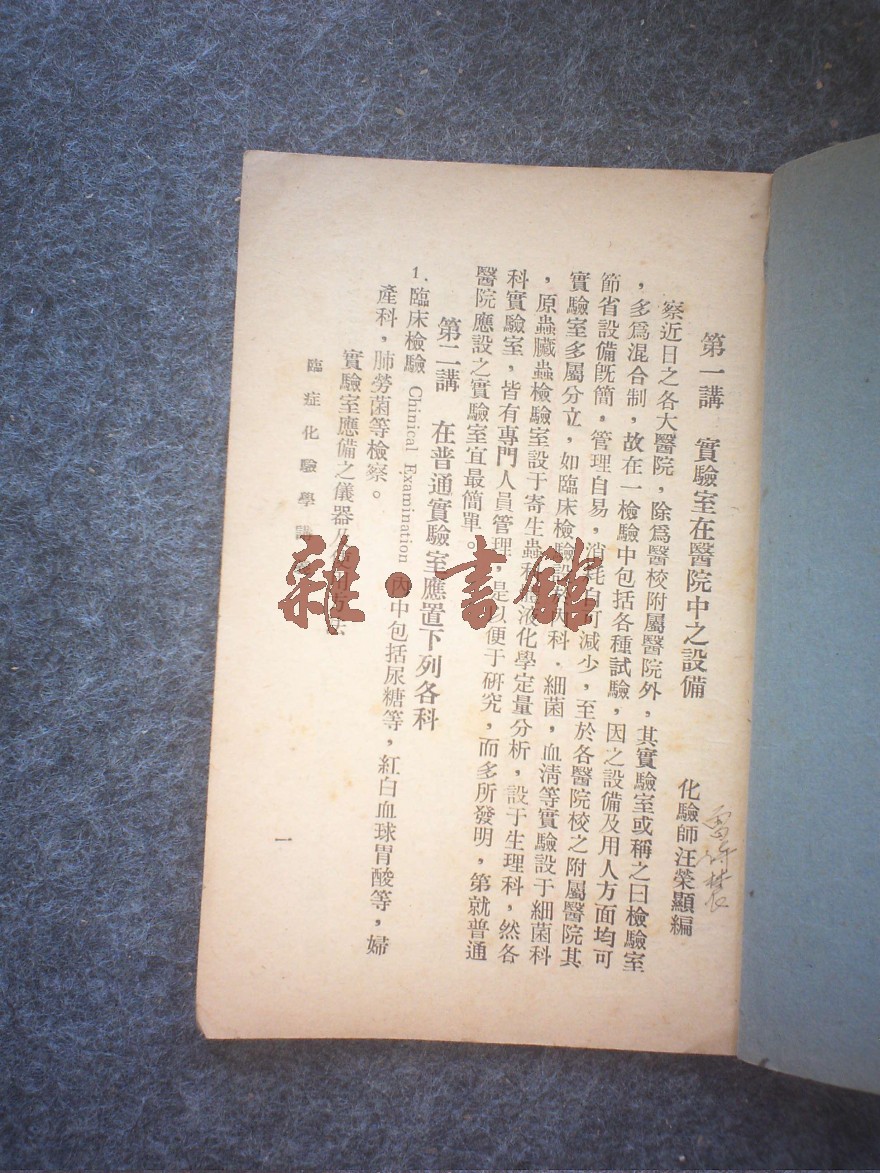 第一講　實驗室在醫院中之設備
化驗師汪榮顯編
察近日之各大醫院，除爲醫校附屬醫院外，其實驗室或稱之曰檢驗室
，多爲混合制，故在一檢驗中包括各種試驗，因之設備及用人方面均可
節省設備旣簡，管理自易，消耗自可減少，至於各醫院校之附屬醫院其
實驗室多屬分立，如臨床檢驗設內科．細菌，血清等實驗設于細菌科
，原蟲臟蟲檢驗室設于寄生蟲科液化學定量分析，設于生理科，然各
科實驗室，皆有專門人員管理，是以便于研究，而多所發明，第就普通
醫院應設之實驗室宜最簡單。
第二講　在普通實驗室應置下列各科
1. 臨床檢驗 Chinical Examination 內中包括尿糖等，紅白血球胃酸等，婦
產科，肺勞菌等檢察。
實驗室應備之儀器及方法
臨症化驗學
一
雜·書館